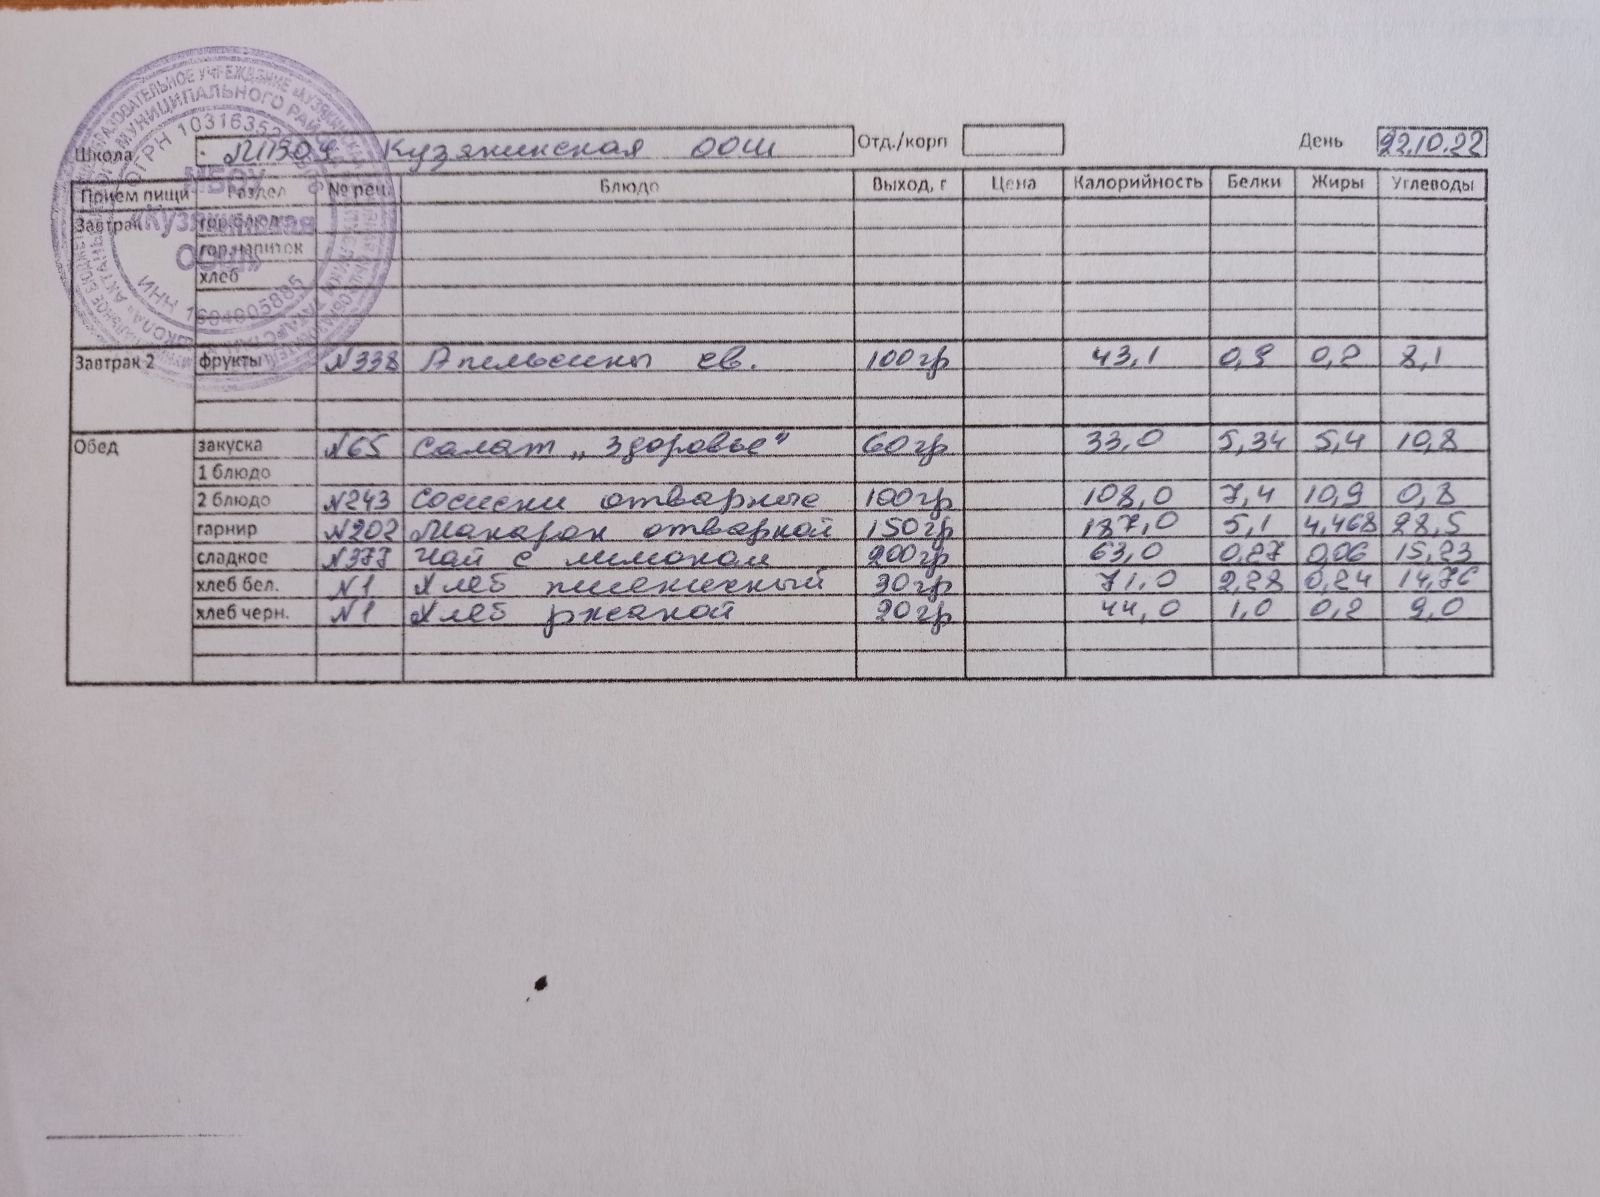 МУНИЦИПАЛЬНОГО
ОГРН
МБОУ
«Кузякинская
ООШ»
ИНН 1604005885
Школа МБОУ Кузякинская ООШ Отд./корп День 22.10.22
Прием пищи Раздел № рец. Блюдо Выход, г Цена Калорийность Белки Жиры Углеводы
Завтрак гор.блюдо
гор.напиток
хлеб
Завтрак 2 фрукты №338 Апельсины св. 100гр 43,1 0,9 0,2 8,1
Обед закуска №65 Салат „Здоровье" 60гр 33,0 5,34 5,4 10,8
1 блюдо
2 блюдо №243 Сосиски отварные 100гр 108,0 7,4 10,9 0,8
гарнир №202 Макарон отварной 150гр 187,0 5,1 4,468 28,5
сладкое №377 Чай с лимоном 200гр 63,0 0,27 0,06 15,23
хлеб бел. №1 Хлеб пшеничный 30гр 71,0 2,28 0,24 14,76
хлеб черн. №1 Хлеб ржаной 20гр 44,0 1,0 0,2 9,0